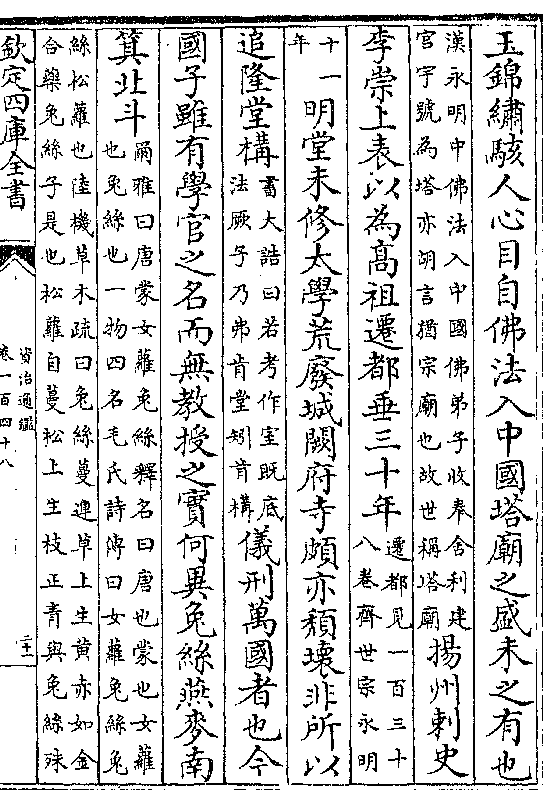 玉錦繡駭人心目自佛法入中國塔廟之盛未之有也
漢永明中佛法入中國佛弟子收奉舍利建
宮宇號為塔亦胡言猶宗廟也故世稱塔廟
揚州刺史
李崇上表以為高祖遷都垂三十年
遷都見一百三十
八卷齊世宗永明
十一
年
明堂未修太學荒廢城闕府寺頗亦頹壞非所以
追隆堂構
書大誥曰若考作室既底
法厥子乃弗肯堂矧肯構
儀刑萬國者也今
國子雖有學官之名而無教授之實何異兔絲燕麥南
箕北斗
爾雅曰唐蒙女蘿兔絲釋名曰唐也蒙也女蘿
也兔絲也一物四名毛氏詩傳曰女蘿兔絲兔
絲松蘿也陸機草木疏曰兔絲蔓連草上生黄赤如金
合藥兔絲子是也松蘿自蔓松上生枝正青與兔絲殊
欽定四庫全書
資治通鑑
卷一百四十八
二十一